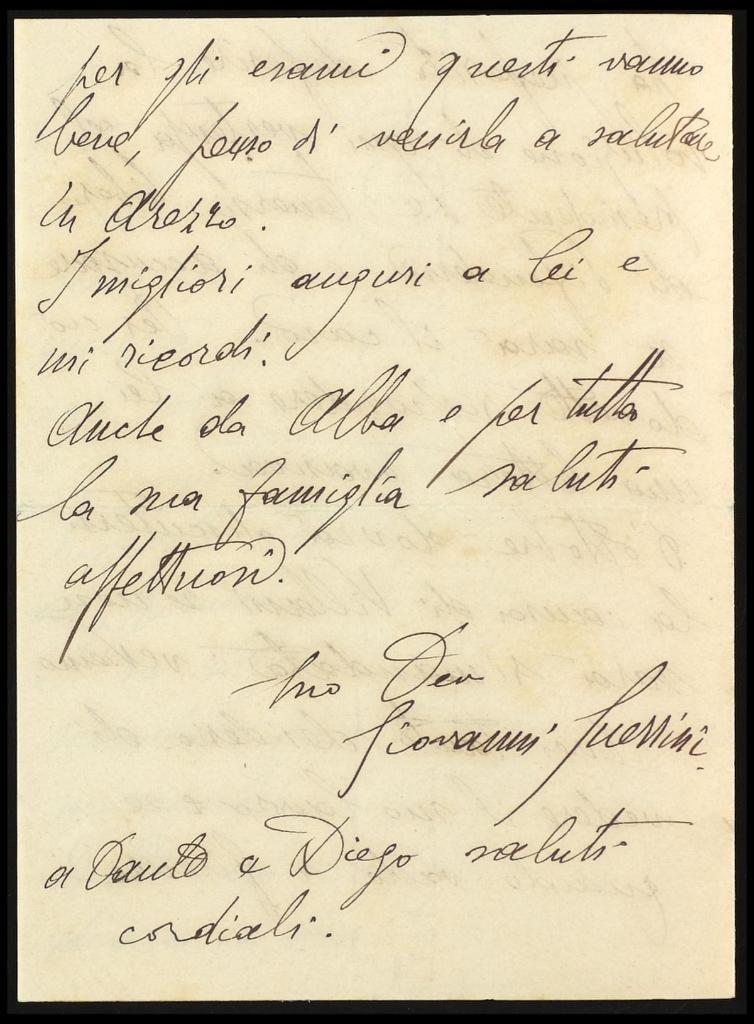 per gli esami questi vanno
bene, penso di venirla a salutare
in Arezzo.
I migliori auguri a lei e
mi ricordi.
Anche da Alba e per tutta
la sua famiglia saluti
affettuosi.
suo Dev
Giovanni Guerrini.
a Dante e Diego saluti
cordiali.